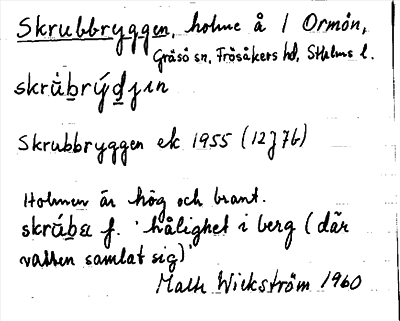 Skrubbryggen, holme å / Ormön,
Gräsö sn, Frösåkers hd, Sthlms l.
skrùb̲rýd̲jın
Skrubbryggen ek 1955 (12J7b)
Holmen är hög och brant.
skrúb̲a f. 'hålighet i berg (där
vatten samlat sig)'
Wickström 1960